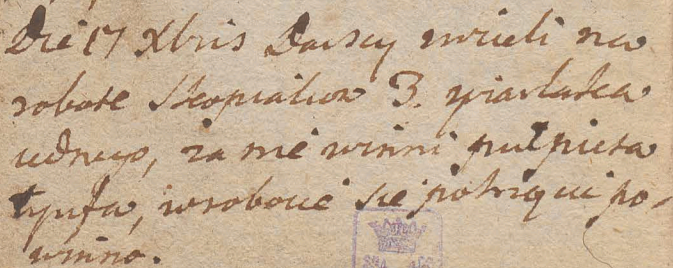 Die 17 Xbris Darscy wzieli na
robote Skopialow 3. y
iednego, za nie winni puł pieta
tynfa, w robocie się potrącić po-
winno.